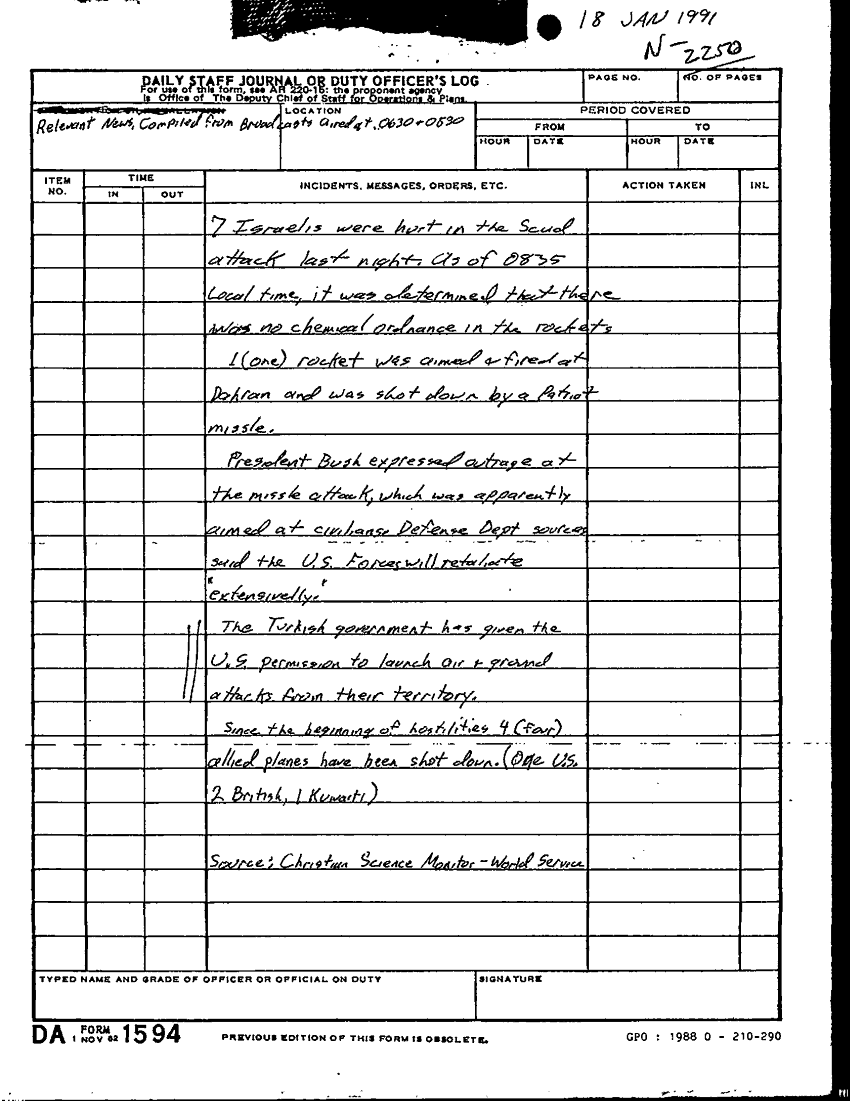 18 JAN 1991
N-2250
DAILY STAFF JOURNAL OR DUTY OFFICER'S LOG
For use of this form, see AR 220-15: the proponent agency
is Office of The Deputy Chief of Staff for Operations & Plans.
PAGE NO.
NO. OF PAGES
LOCATION
PERIOD COVERED
Relevant News, Compiled from Broadcasts aired at 0630 + 0530
FROM
TO
HOUR
DATE
HOUR
DATE
ITEM NO.
TIME
IN
OUT
INCIDENTS, MESSAGES, ORDERS, ETC.
ACTION TAKEN
INL
7 Israelis were hurt in the Scud
attack last night. As of 0835
Local time, it was determined that there
was no chemical ordnance in the rockets
1 (one) rocket was aimed & fired at
Dahran and was shot down by a Patriot
missle.
President Bush expressed outrage at
the missle attack, which was apparently
aimed at civilians. Defense Dept sources
said the U.S. Forces will retaliate
"extensivelly."
The Turkish government has given the
U.S. permission to launch air + ground
attacks from their territory.
Since the beginning of hostilities 4 (four)
allied planes have been shot down. (One U.S.
2 British, 1 Kuwaiti)
Source: Christian Science Monitor - World Service
TYPED NAME AND GRADE OF OFFICER OR OFFICIAL ON DUTY
SIGNATURE
DA FORM 1 NOV 62 1594
PREVIOUS EDITION OF THIS FORM IS OBSOLETE.
GPO : 1988 O - 210-290